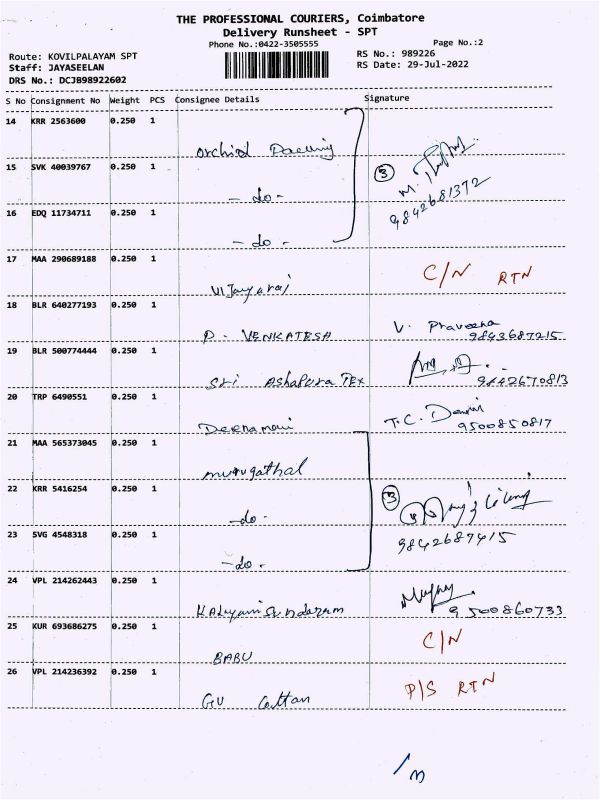 THE PROFESSIONAL COURIERS, Coimbatore
Delivery Runsheet - SPT
Phone No.:0422-3505555
Page No.:2
Route: KOVILPALAYAM SPT
Staff: JAYASEELAN
DRS No.: DCJB98922602
RS No.: 989226
RS Date: 29-Jul-2022
S No Consignment No Weight PCS Consignee Details Signature
14 KRR 2563600 0.250 1
orchid
15 SVK 40039767 0.250 1
- do -
3
M.
9842681372
16 EDQ 11734711 0.250 1
- do -
17 MAA 290689188 0.250 1
Vijayaraj
C/N RTN
18 BLR 640277193 0.250 1
P. VENKATESH
V. Praveena
9843687215
19 BLR 500774444 0.250 1
Sri Ashapura Tex
9842670813
20 TRP 6490551 0.250 1
Deenamani
T.C.
9500850817
21 MAA 565373045 0.250 1
murugathal
22 KRR 5416254 0.250 1
- do -
3
23 SVG 4548318 0.250 1
- do -
9842687415
24 VPL 214262443 0.250 1
Kalyanisundaram
9500860733
25 KUR 693686275 0.250 1
BABU
C/N
26 VPL 214236392 0.250 1
GV Cottan
P/S RTN